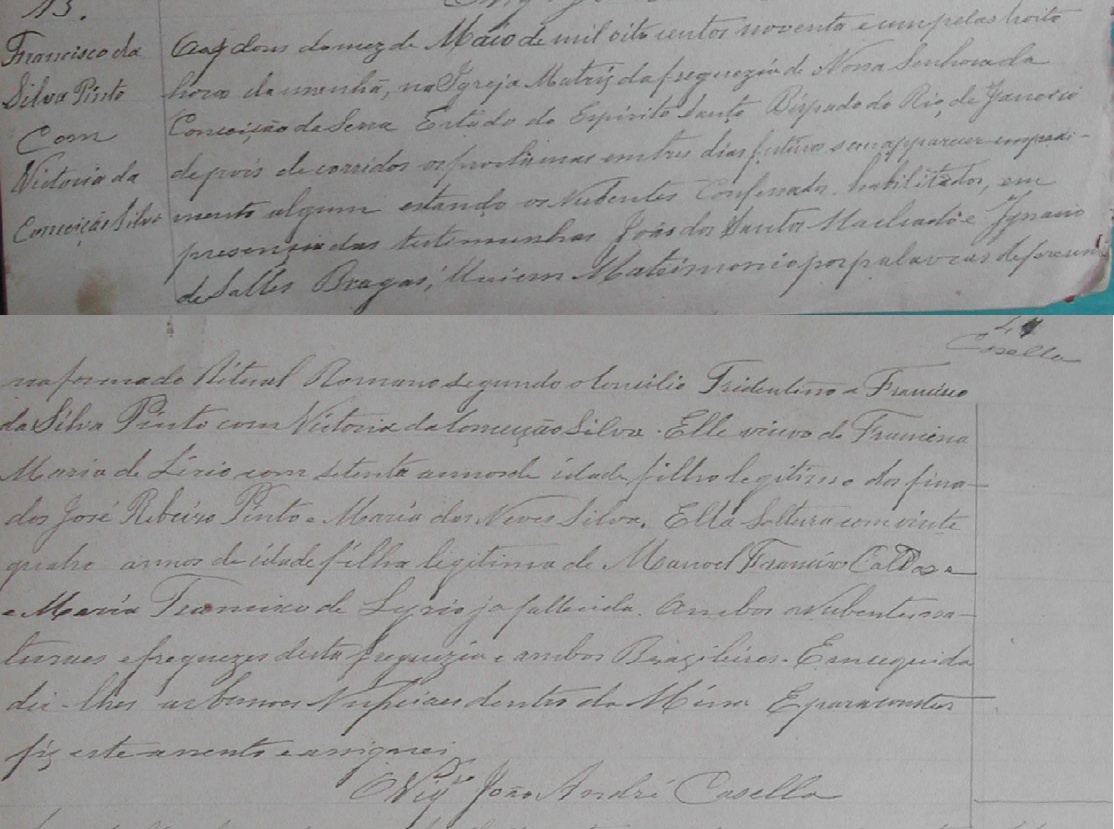 13.
Francisco da
Silva Pinto
Com
Victoria da
Conceição Silva
Aos dous do mez de Maio de mil oito centos noventa e um pelas hoito
horas da manhã, na Igreja Matriz da freguezia de Nossa Senhora da
Conceição da Serra Estado do Espirito Santo Bispado do Rio de Janeiro
depois de corridos os proclamas em tres dias festivos sem apparecer empedi-
mento algum estando os Nubentes Confessados, habilitados, em
presença das testimunhas João dos Santos Machado e Ignacio
de Salles Bragas, Uniem Matrimonio por palavras de presente
4
Casella
na forma do Ritual Romano segundo o Concilio Tridentino a Francisco
da Silva Pinto com Victoria da Conceição Silva. Elle viuvo de Francisca
Maria de Lirio com setenta annos de idade filho legitimo dos fina-
dos José Ribeiro Pinto e Maria das Neves Silva. Ella Solteira com vinte
quatro annos de idade filha legitima de Manoel Francisco Caldosa
e Maria Francisca de Lyrio ja fallecida. Ambos os Nubentes na-
turaes e freguezes desta freguezia e ambos Brazileiros. E em seguida
dei-lhes as bencões Nupciaes dentro da Missa E para constar
fiz este assento e assignei
O Vigº João André Casella